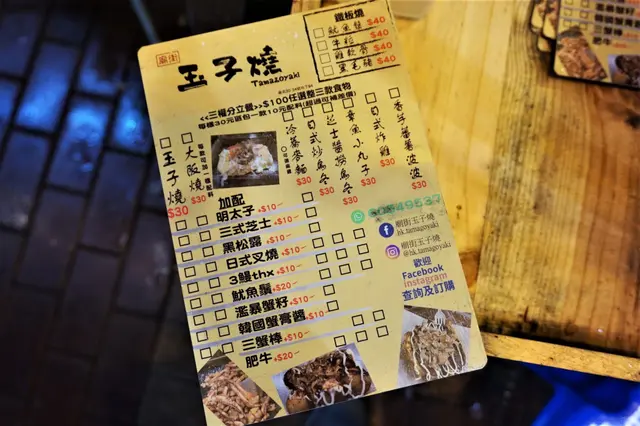 廟街
玉子燒
Tamagoyaki
鐵板燒
魷魚鬚 $40
牛粒 $40
雞軟骨 $40
黑毛豬 $40
<<三權分立餐>>$100任選整三款食物
每樣30元送包一款10元配料(超過可補差價)
玉子燒 $30
大阪燒 $30
每款可加一樣配料
冷蕎麥麵 $30
日式炒烏冬 $30
芝士醬撈烏冬 $30
章魚小丸子 $30
日式炸雞 $30
香芋蕃薯波波 $30
加配
明太子 +$10
三式芝士 +$10
黑松露 +$10
日式叉燒 +$10
3鰻thx +$10
魷魚鬚 +$20
濫暴蟹籽 +$10
韓國蟹膏醬 +$10
三蟹棒 +$10
肥牛 +$20
廟街玉子燒
hk.tamagoyaki
廟街玉子燒
@hk.tamagoyaki
歡迎
Facebook
instagram
查詢及訂購